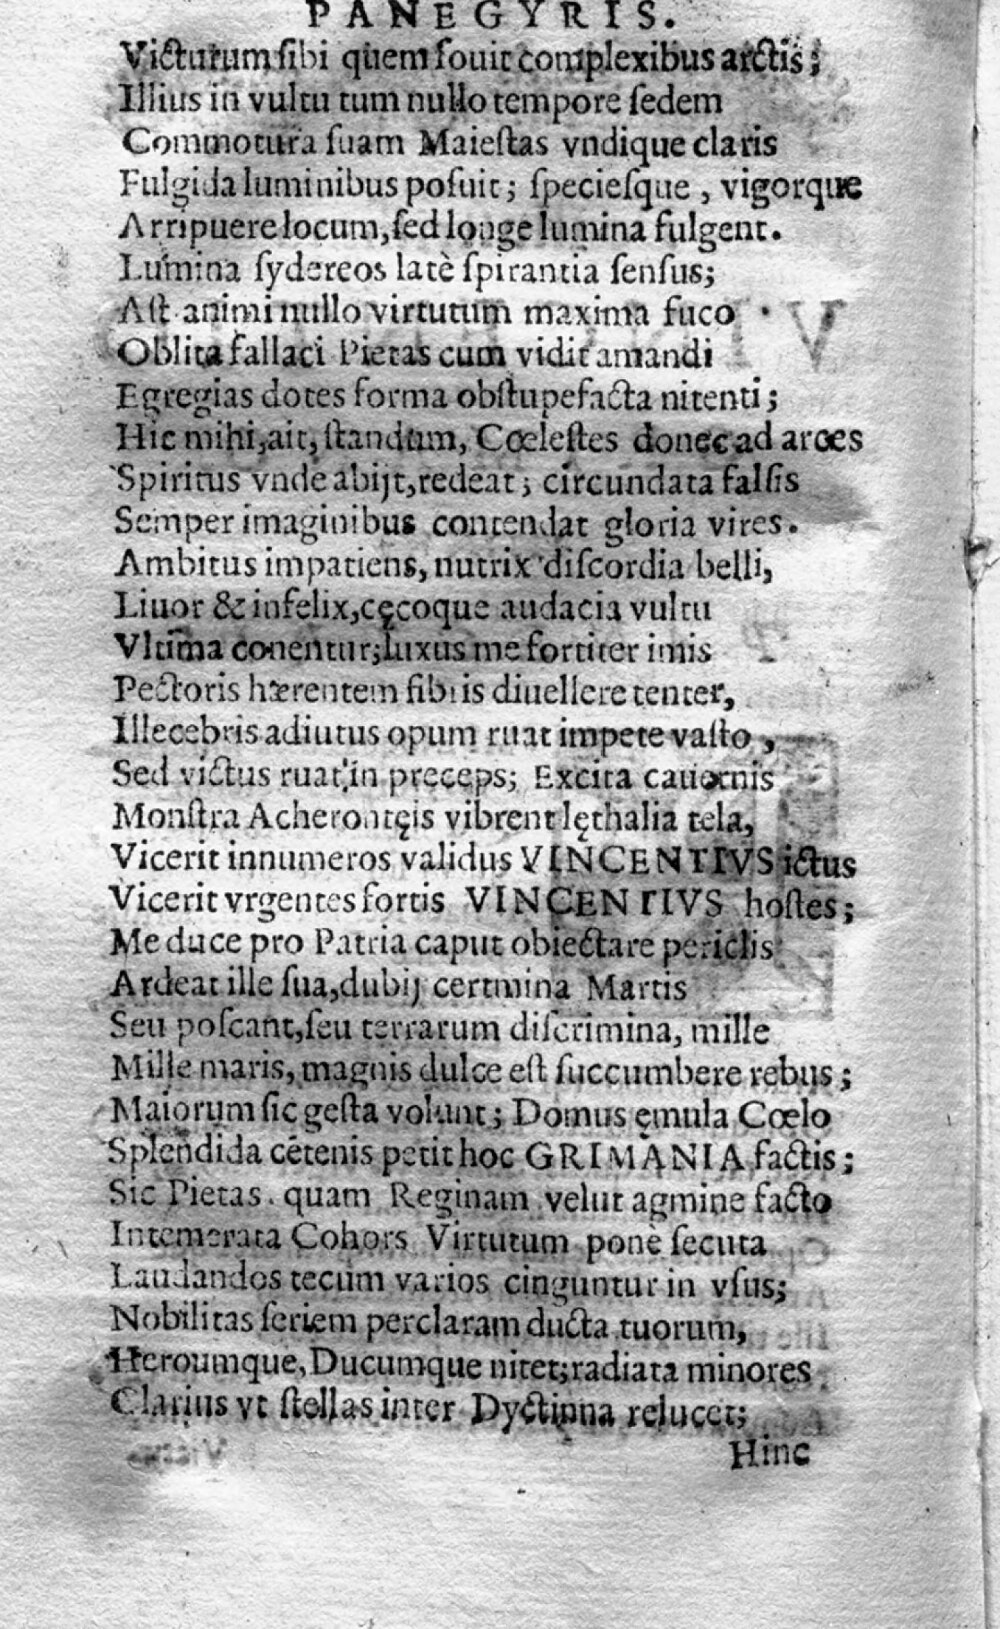 PANEGYRIS.
Victurum sibi quem fouit complexibus arctis;
Illius in vultu tum nullo tempore sedem
Commotura suam Maiestas vndique claris
Fulgida luminibus posuit; speciesque, vigorque
Arripuere locum, sed longe lumina fulgent.
Lumina sydereos latè spirantia sensus;
Ast animi nullo virtutum maxima fuco
Oblita fallaci Pietas cum vidit amandi
Egregias dotes forma obstupefacta nitenti;
Hic mihi, ait, standum, Cœlestes donec ad arces
Spiritus vnde abijt, redeat; circundata falsis
Semper imaginibus contendat gloria vires.
Ambitus impatiens, nutrix discordia belli,
Liuor & infelix, cęcoque audacia vultu
Vltima conentur; luxus me fortiter imis
Pectoris hærentem fibris diuellere tentet,
Illecebris adiutus opum ruat impete vasto,
Sed victus ruat in preceps; Excita cauernis
Monstra Acherontęis vibrent lęthalia tela,
Vicerit innumeros validus VINCENTIVS ictus
Vicerit vrgentes fortis VINCENTIVS hostes;
Me duce pro Patria caput obiectare periclis
Ardeat ille sua, dubij certmina Martis
Seu poscant, seu terrarum discrimina, mille
Mille maris, magnis dulce est succumbere rebus;
Maiorum sic gesta volunt; Domus ęmula Cœlo
Splendida cętenis petit hoc GRIMANIA factis;
Sic Pietas. quam Reginam velut agmine facto
Intemerata Cohors Virtutum ponè secuta
Laudandos tecum varios cinguntur in vsus;
Nobilitas seriem perclaram ducta tuorum,
Heroumque, Ducumque nitet; radiata minores
Clarius vt stellas inter Dyctinna relucet;
Hinc